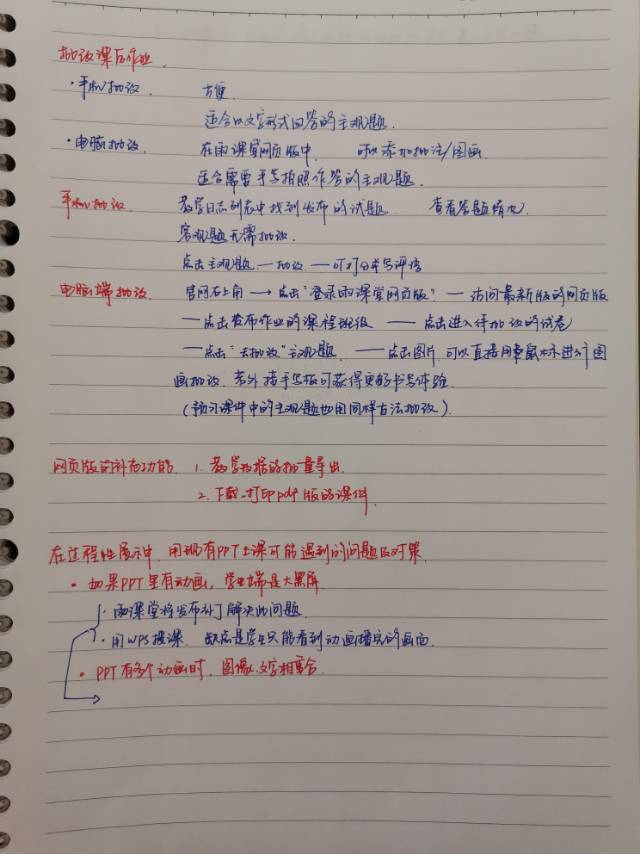 批改课后作业
·手机批改 方便
适合以文字形式回答的主观题.
·电脑批改. 在雨课堂网页版中 可以添加批注/图画
适合需要手写拍照作答的主观题.
手机批改 教学日志列表中找到发布的试题 查看答题情况
客观题无需批改.
点击主观题—批改—可打分并写评语
电脑端批改 官网右上角→点击"登录雨课堂网页版"—访问最新版的网页版
—点击发布作业的课程班级 —点击进入待批改的试卷
—点击"去批改"主观题. —点击图片,可以直接用鼠标进行图
画批改.若外接手写板可获得更好书写体验.
(预习课件中的主观题也用同样方法批改).
网页版的补充功能 1.教学数据的批量导出
2.下载打印pdf版的课件
在过程性展示中,用现有PPT上课可能遇到的问题及对策
·如果PPT里有动画,学生端是大黑屏
·雨课堂将发布补丁解决此问题
·用WPS授课. 缺点是学生只能看到动画播完的画面
·PPT有多个动画时,图像、文字相重合